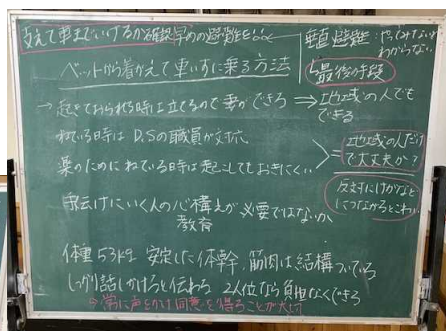 支えて車までいけるか確認 早めの避難を
垂直避難：やってみないとわからない
↳最後の手段
ベットから着がえて車いすに乗る方法
→ 起きておられる時は立てるので妻ができる ⇒ 地域の人でもできる
ねている時は D.Sの職員が対応
薬のためにねている時は起こしてもおきにくい
＝地域の人だけで大丈夫か？
反対にけがなどにつながるとこわい
手伝けにいく人の心構えが必要ではないか
教育
体種53kg 安定した体幹、筋肉は結構ついている
しっかり話しかけると伝わる 2人位なら自由なくできる
⇒常に声をかけ同意を得ることが大切